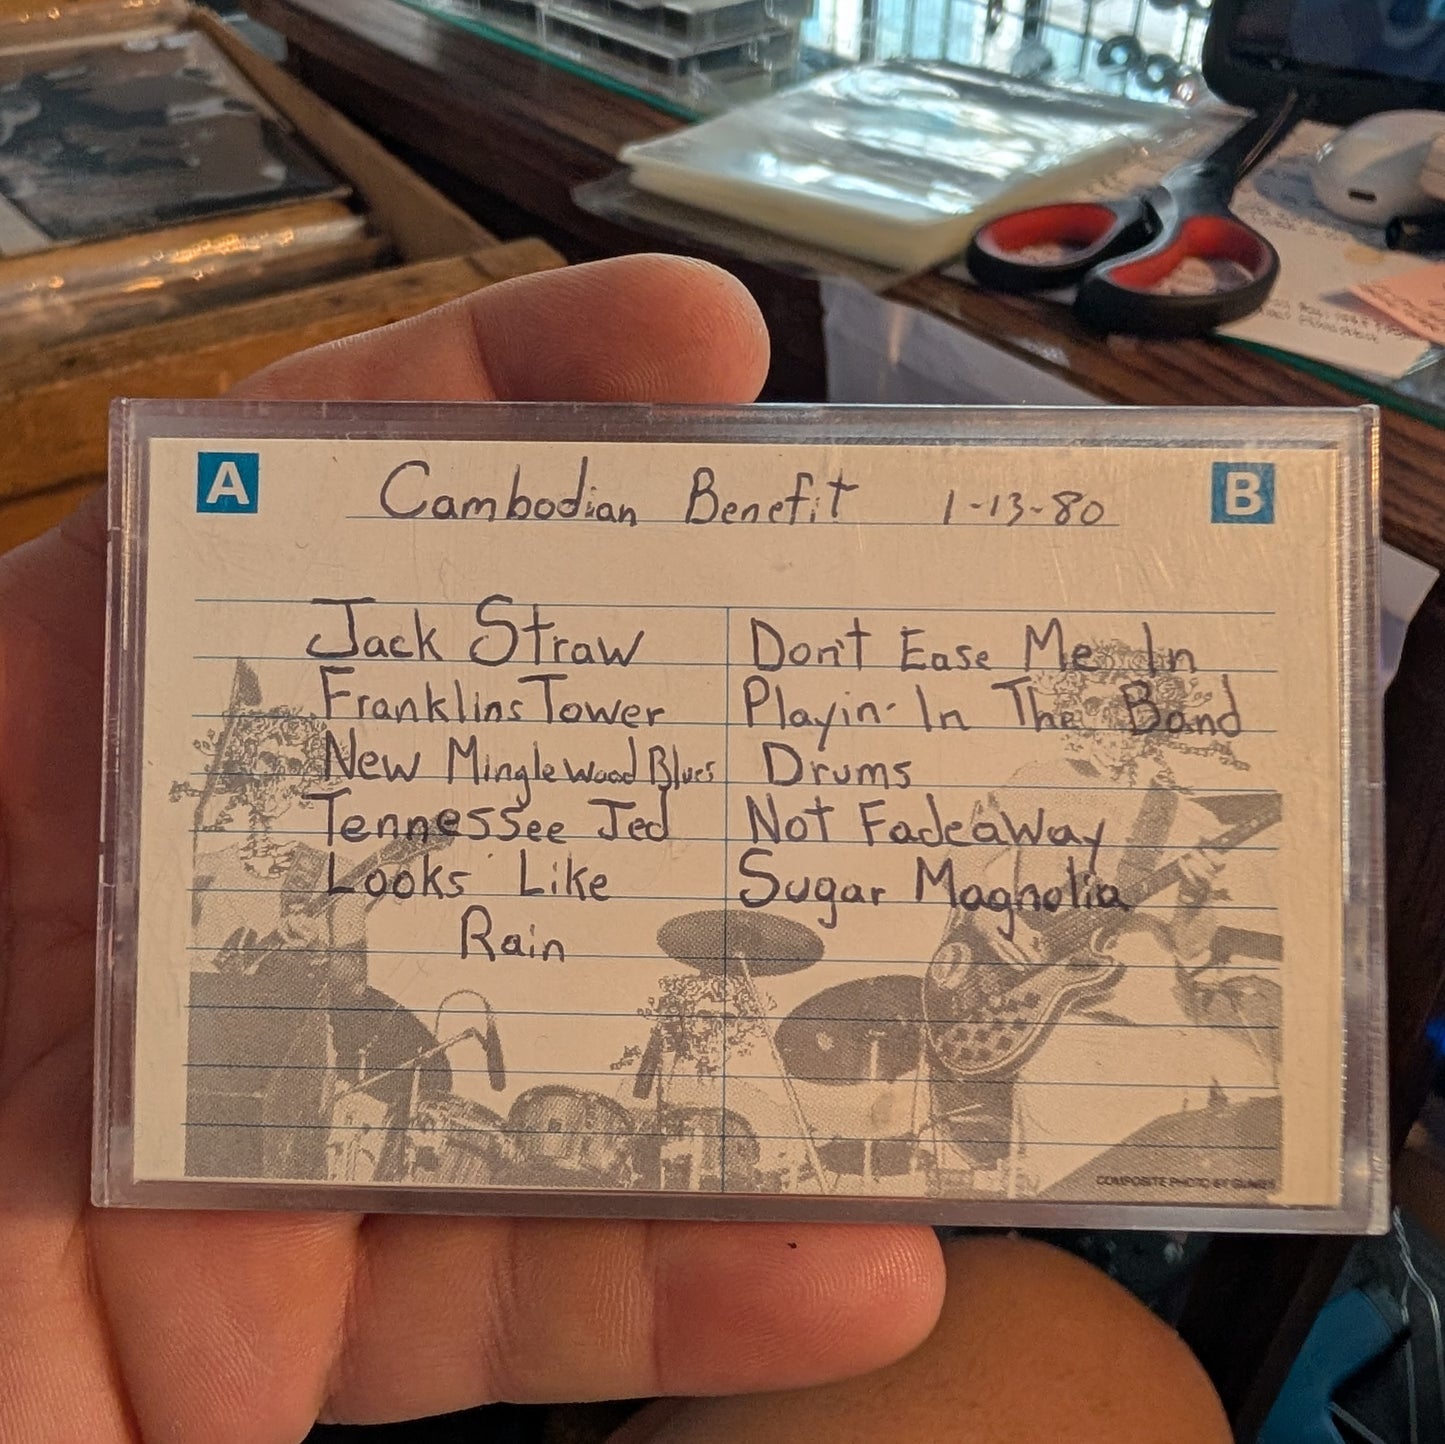 A Cambodian Benefit 1-13-80 B
Jack Straw
Franklins Tower
New Minglewood Blues
Tennessee Jed
Looks Like
Rain
Don't Ease Me In
Playin' In The Band
Drums
Not Fadeaway
Sugar Magnolia
COMPOSITE PHOTO BY